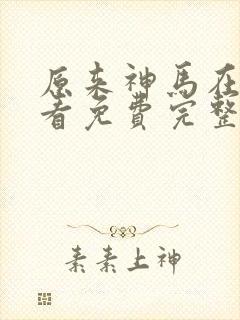 原来神马在
看免费完整
素素上神